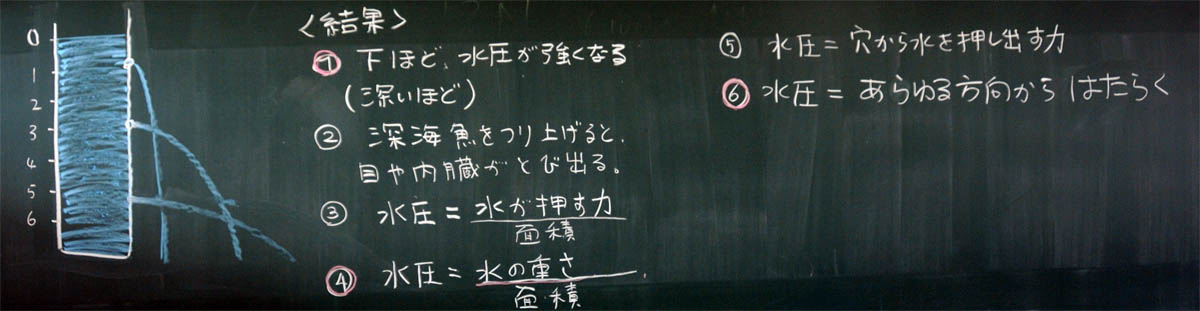 0
1
2
3
4
5
6
〈結果〉
① 下ほど、水圧が強くなる
(深いほど)
② 深海魚をつり上げると、
目や内臓がとび出る。
③ 水圧 = 水が押す力
面積
④ 水圧 = 水の重さ
面積
⑤ 水圧 = 穴から水を押し出す力
⑥ 水圧 = あらゆる方向から はたらく